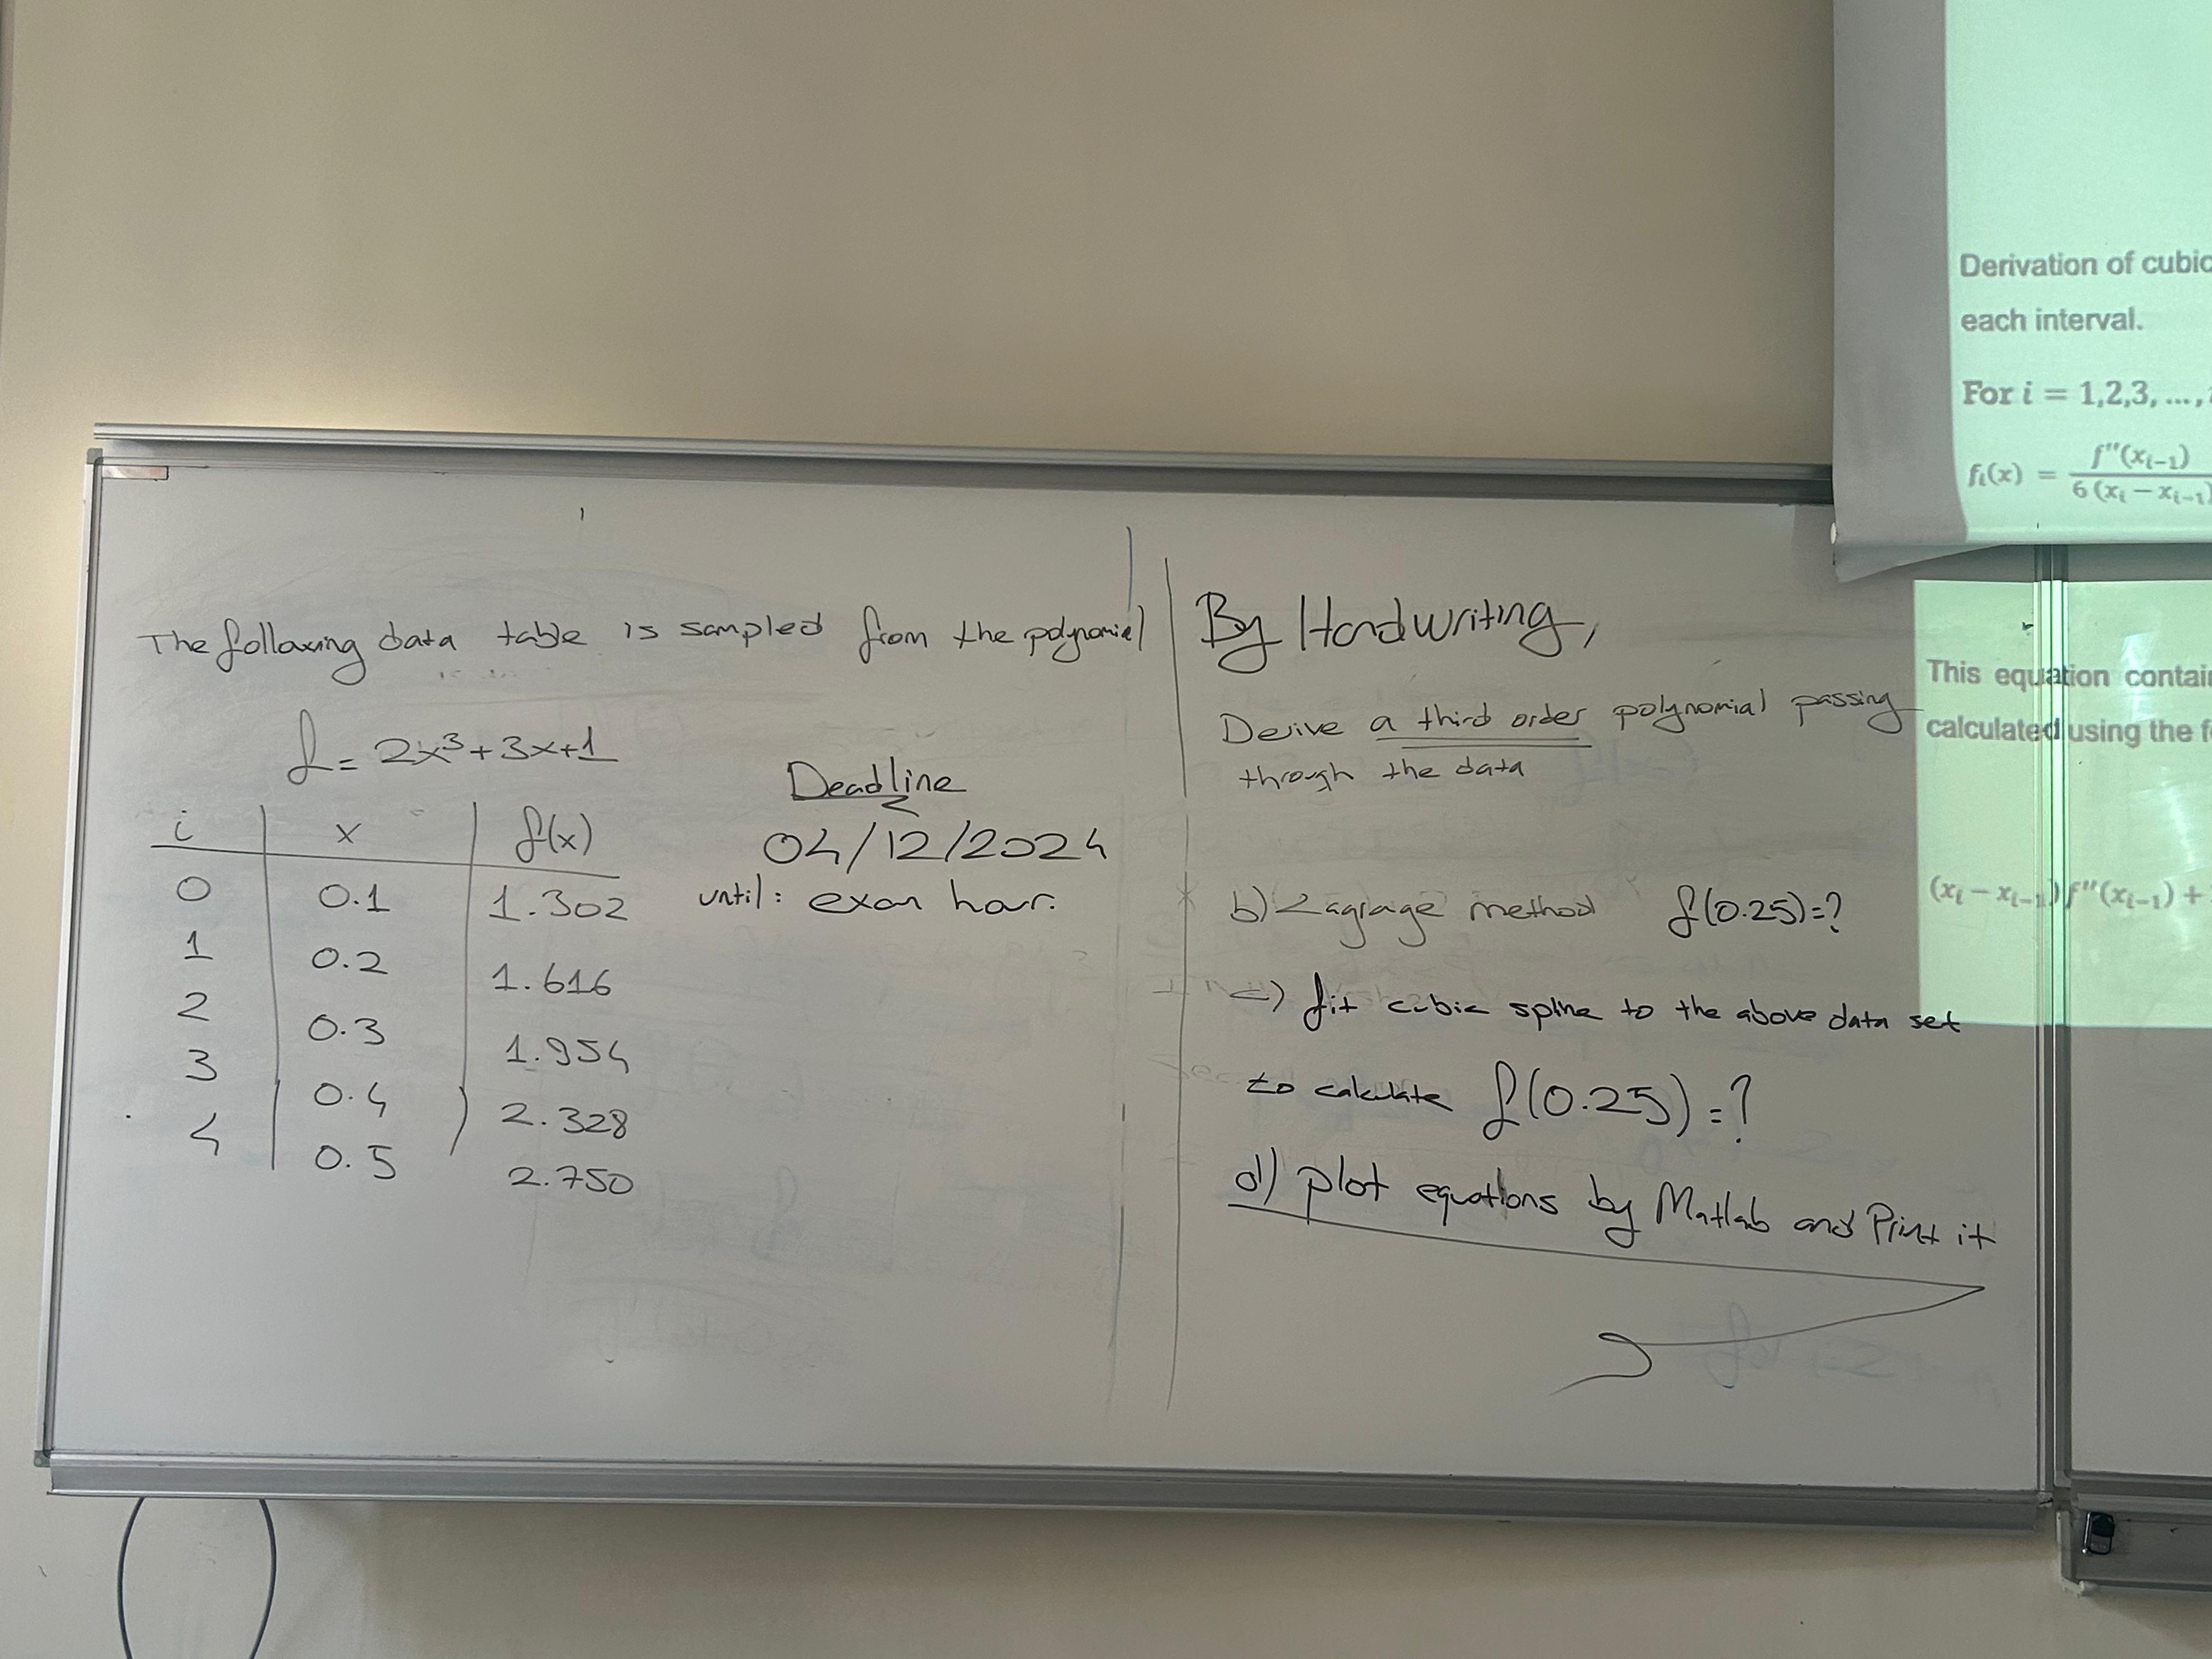 The following data table is sampled from the polynomial
f = 2x³+3x+1
i x f(x)
0 0.1 1.302
1 0.2 1.616
2 0.3 1.954
3 0.4 2.328
4 0.5 2.750
Deadline
04/12/2024
until: exam hour.
By Handwriting,
Derive a third order polynomial passing
through the data
b) Lagrage method f(0.25)=?
c) fit cubic spline to the above data set
to calculate f(0.25)=?
d) plot equations by Matlab and Print it
Derivation of cubic
each interval.
For i = 1,2,3, ...,
fᵢ(x) = f''(xᵢ₋₁) / 6 (xᵢ − xᵢ₋₁)
This equation contai
calculated using the f
(xᵢ − xᵢ₋₁)f''(xᵢ₋₁) +